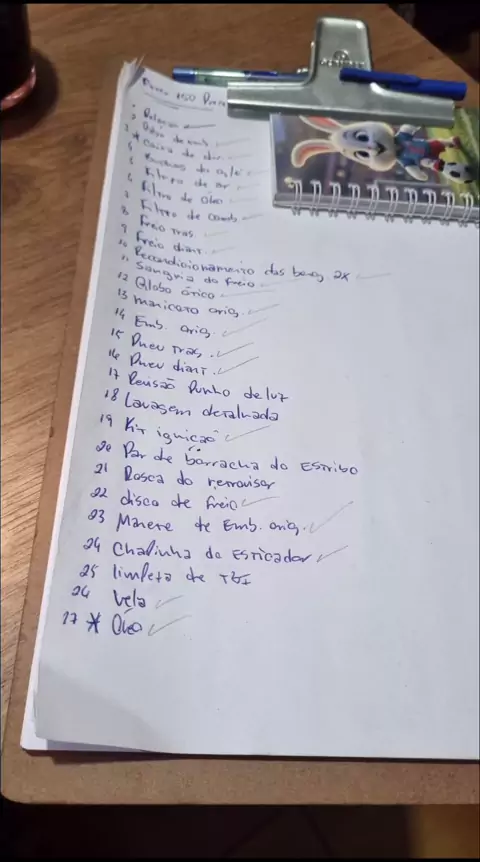 150
1 Relação
2 Óleo de emb.
3 * Caixa de dir.
4 Buchas do
5 Filtro de ar
6 Filtro de óleo
7 Filtro de comb.
8 Freio tras.
9 Freio diant.
10 Recondicionamento das beng 2x
11 Sangria do freio
12 Globo ótico
13 Manicoto orig.
14 Emb. orig.
15 Pneu tras.
16 Pneu diant.
17 Revsão Punho de luz
18 Lavagem detalhada
19 Kit ignicão
20 Par de borracha do Estribo
21 Rosca do retrovisor
22 disco de freio
23 Manete de Emb. orig.
24 Chapinha do Esticador
25 limpeza de TBI
26 Vela
27 * Óleo